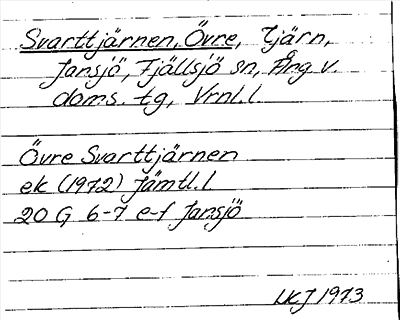 Svarttjärnen, Övre, Tjärn,
Jansjö, Fjällsjö sn, Ång v.
doms. tg, Vrnl. l.
Övre Svarttjärnen
ek (1972) Jämtl. l
20 G 6-7 e-f Jansjö
LKJ 1973